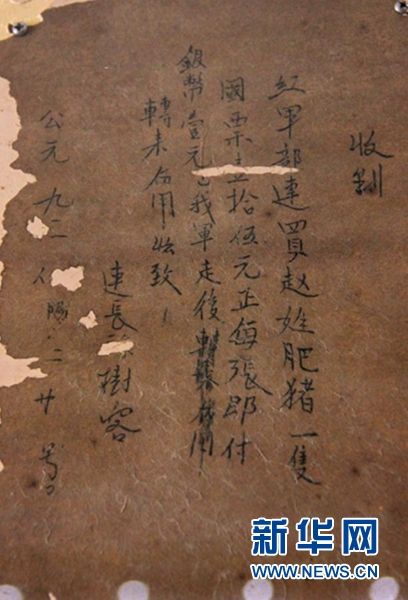 收到
红軍部連買赵姓肥猪一隻
國票 拾伍元正每張即付
銀幣壹元 我軍走後
轉来 用 致
連長 樹容
公元 九二 二廿号
新华网
WWW.NEWS.CN